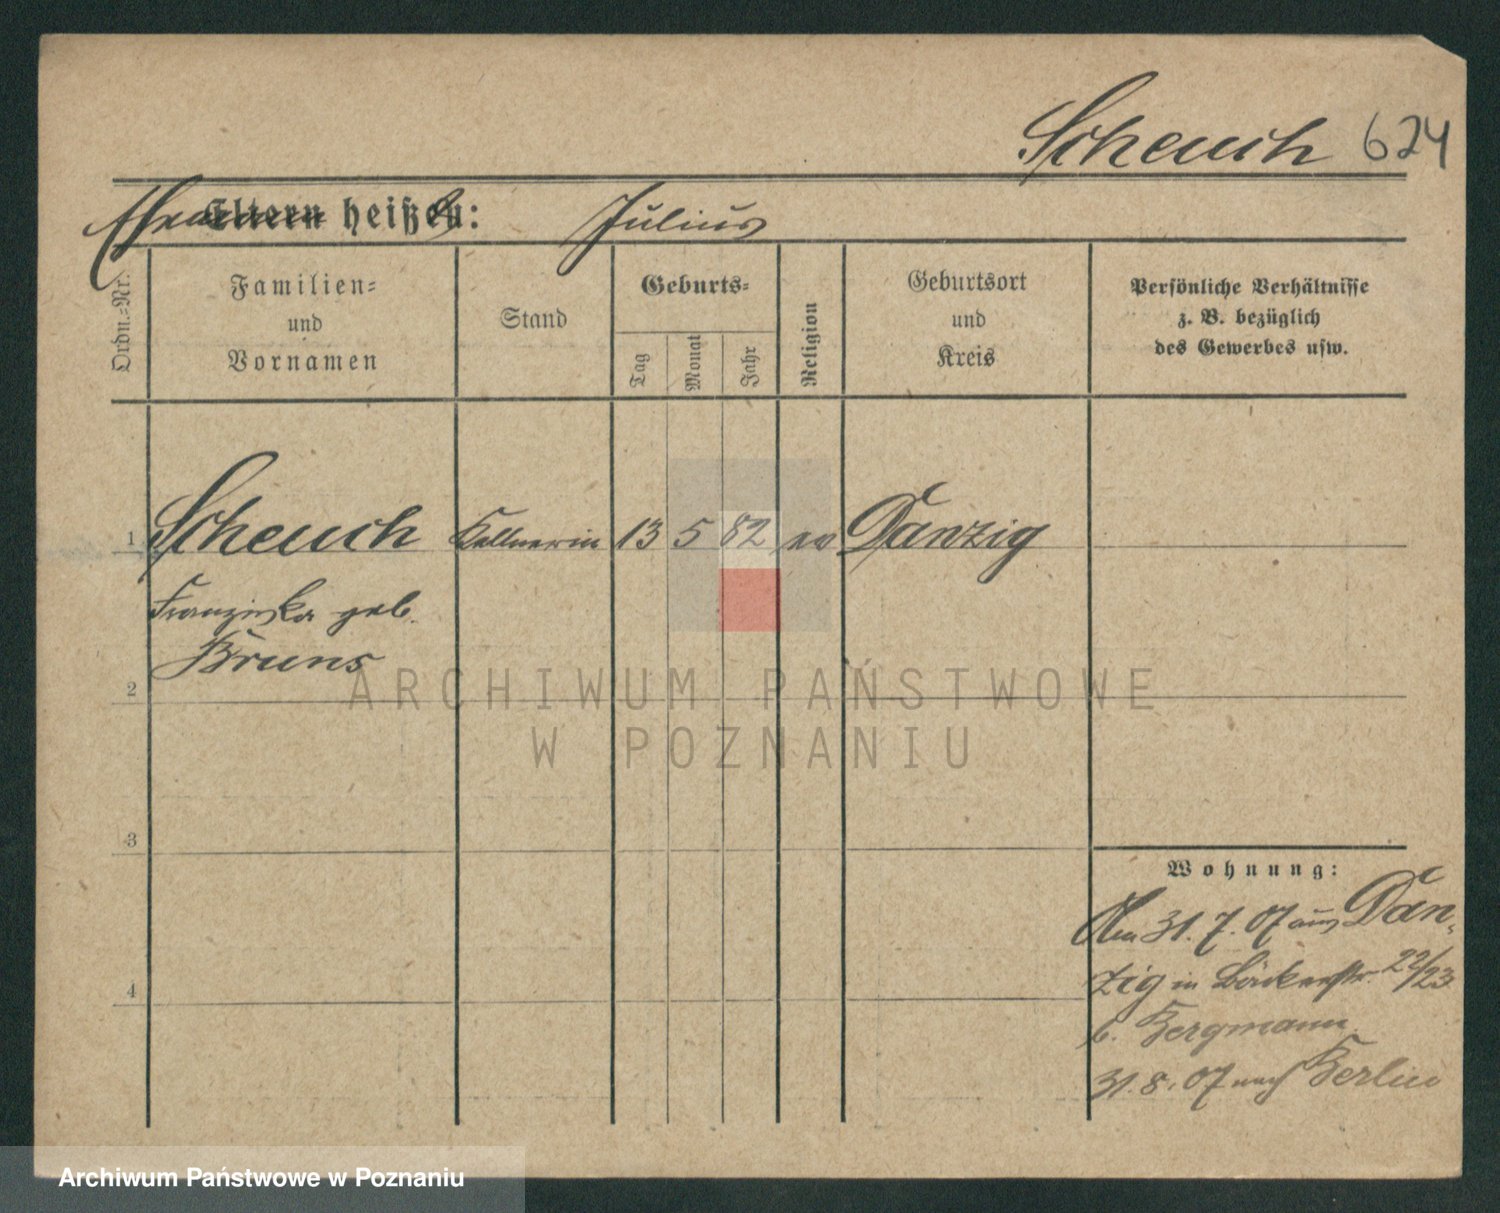 Scheuch 624
Ehemann heißt: Julius
Ordn.-Nr.
Familien-
und
Vornamen
Stand
Geburts-
Tag
Monat
Jahr
Religion
Geburtsort
und
Kreis
Persönliche Verhältnisse
z. B. bezüglich
des Gewerbes usw.
1 Scheuch Kellnerin 13 5 82 ev Danzig
Franziska geb.
Bruns
2
ARCHIWUM PAŃSTWOWE
W POZNANIU
3
Wohnung:
Am 31. 7. 07 aus Dan-
zig in Bäckerstr. 22/23
b. Bergmann
4
31. 8. 07 nach Berlin
Archiwum Państwowe w Poznaniu